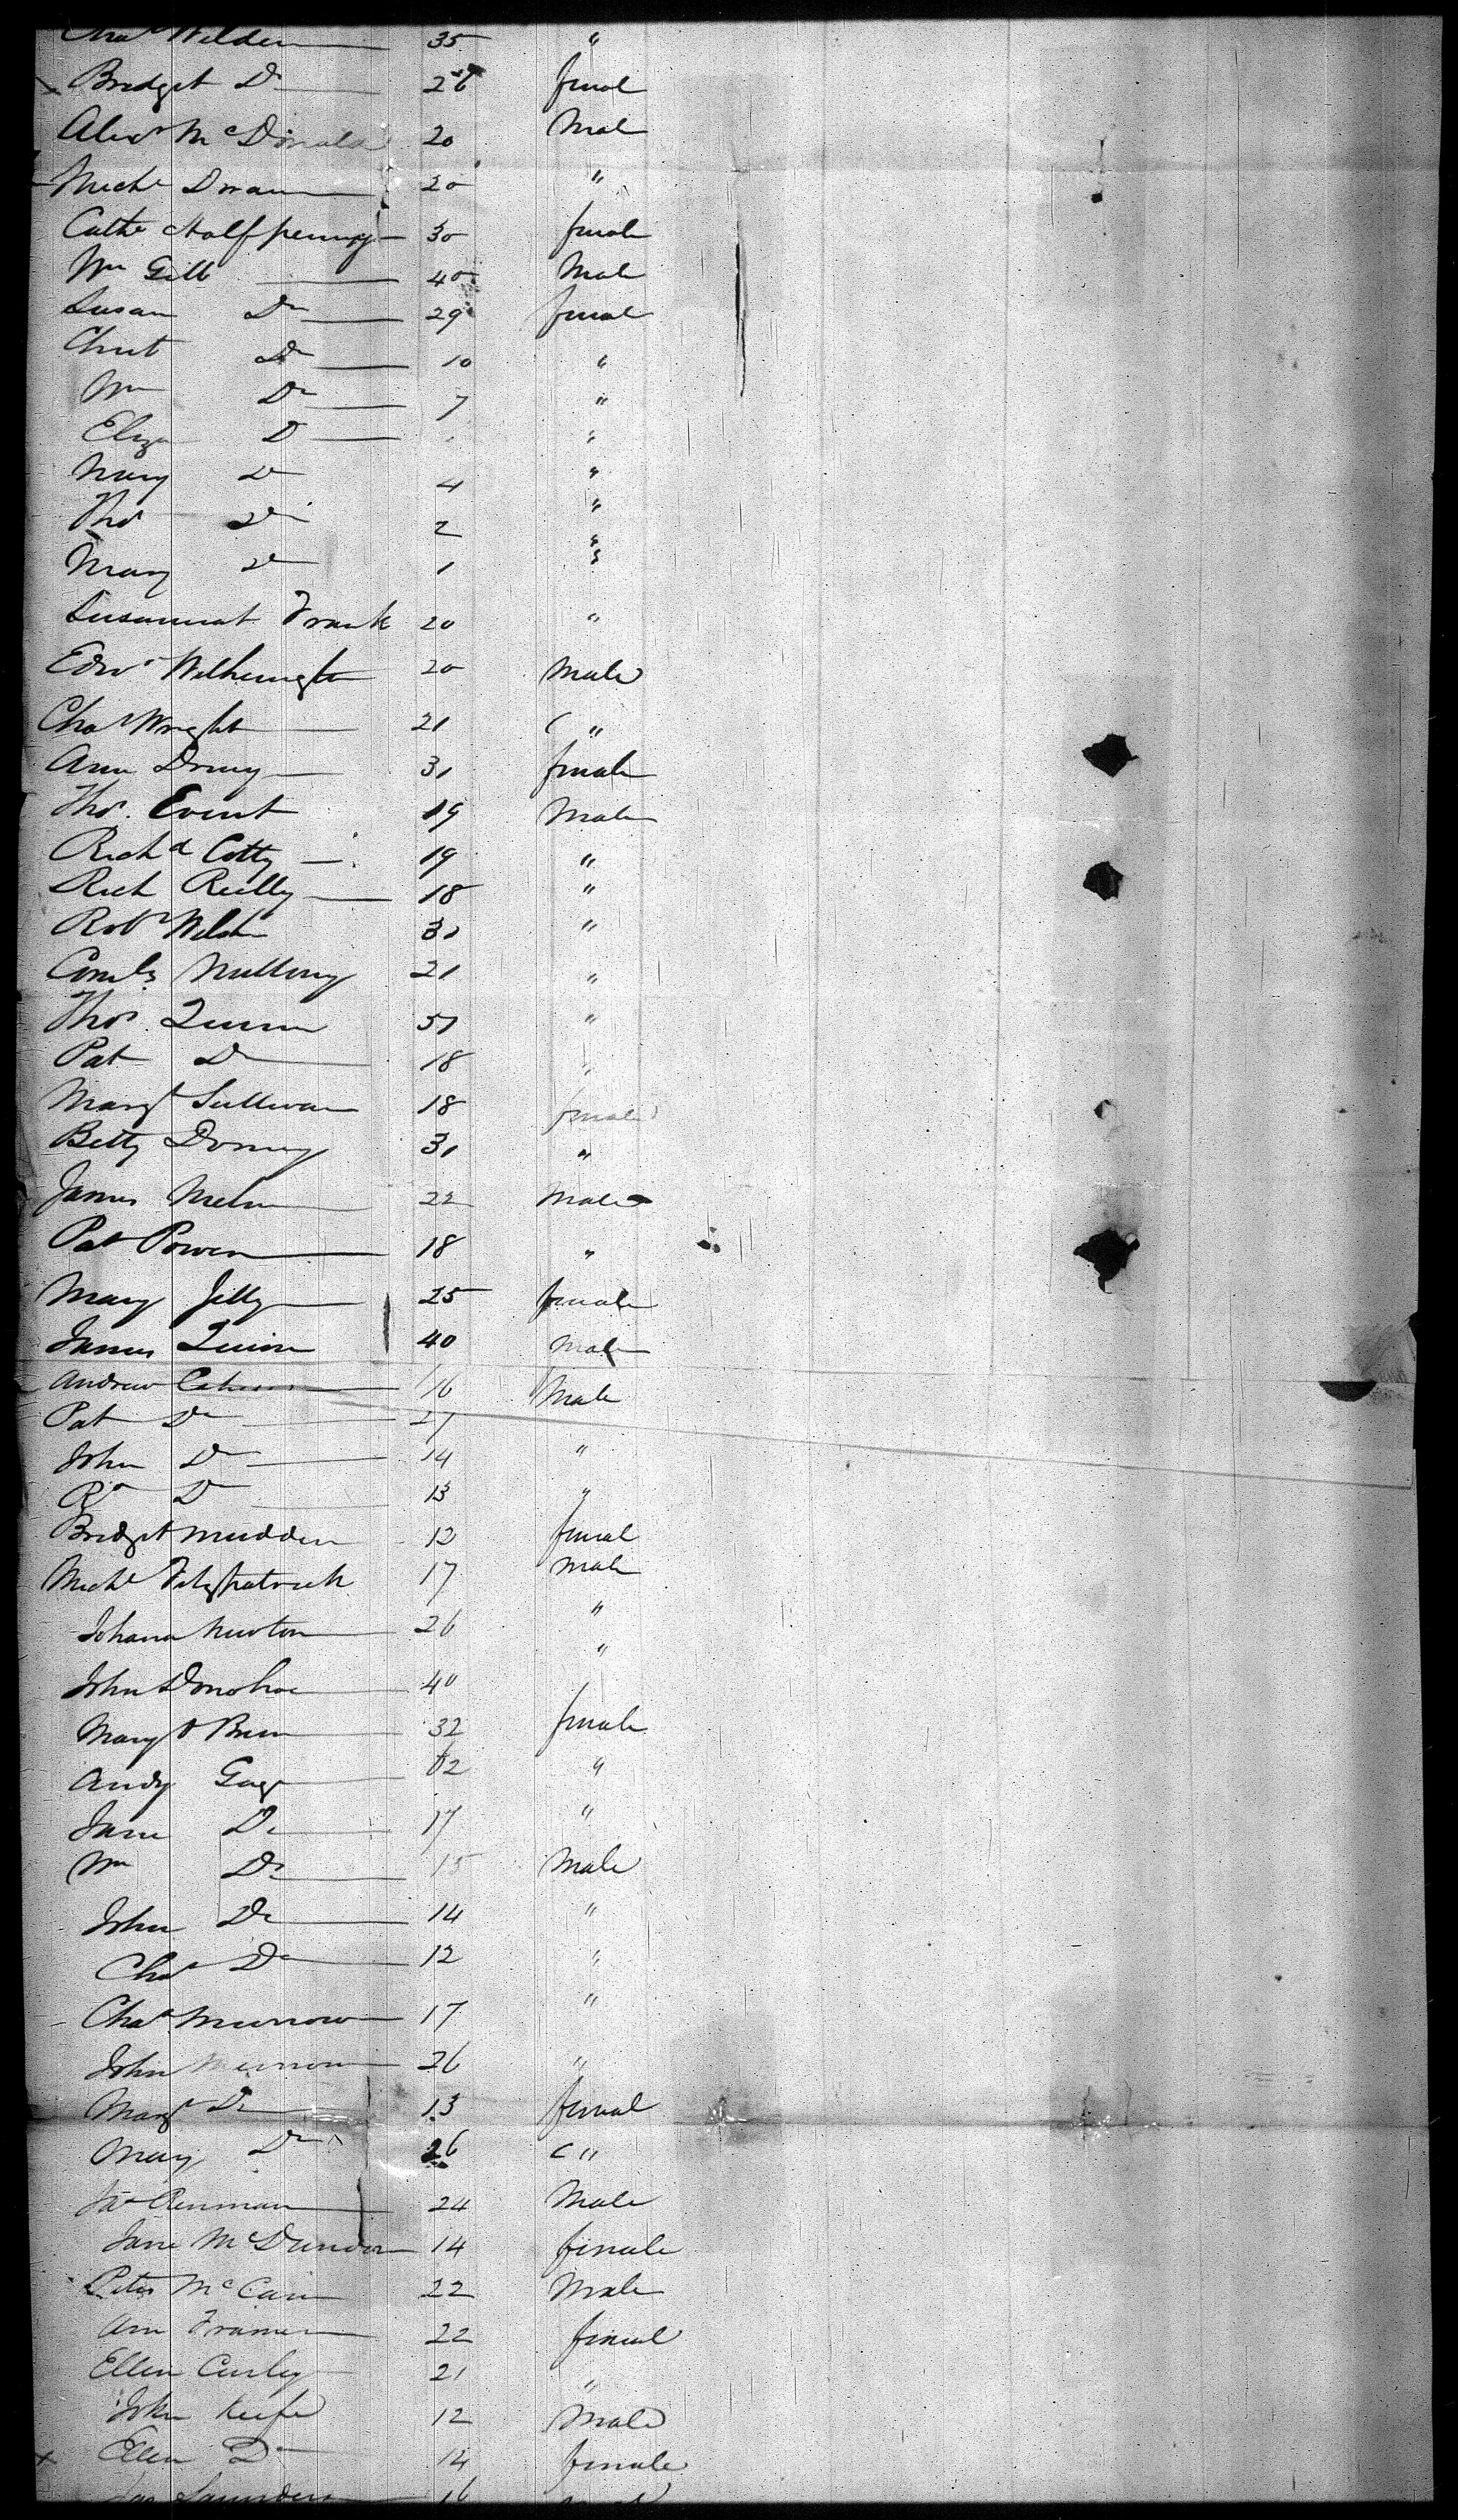 Chas Wilden 35 "
Bridget Do 26 femal
Alexr McDonald 20 Mal
Michl Doran 20 "
Cathe Halfpenny 30 female
Wm Gill 40 Male
Susan Do 29 female
Do 10 "
Wm Do 7 "
Eliza D "
Mary Do 4 "
Thos Do 2 "
Mary Do 1 "
Susannah Frank 20 "
Edwd 20 Male
Chas Wright 21 "
Ann 31 female
Thos. Evint 19 Male
Richd Cotty 19 "
Rich Reilly 18 "
Robt 30 "
Cornls 21 "
Thos. Quinn 51 "
Pat Do 18 "
Margt Sullivan 18 female
Betty 31 "
James 22 Male
Pat Power 18 "
Mary 25 female
James Quinn 40 Male
Andrew 16 Male
Pat Do 27
John Do 14 "
Do 13 "
Bridget Madden 12 femal
Michl Fitzpatrick 17 Male
Johana Newton 26 "
John Donohoe 40 "
32 female
Andy 62 "
Jane Do 17 "
Wm Do 15 Male
John Do 14 "
Chas Do 12 "
Chas Murrow 17 "
John Murrow 26 "
Margt Do 13 femal
Mary Do 26 "
24 Male
Jane 14 female
Peter McCann 22 Male
Ann 22 femal
Ellen Curley 21 "
John Keefe 12 Male
Ellen Do 14 female
Jas Saunders 16